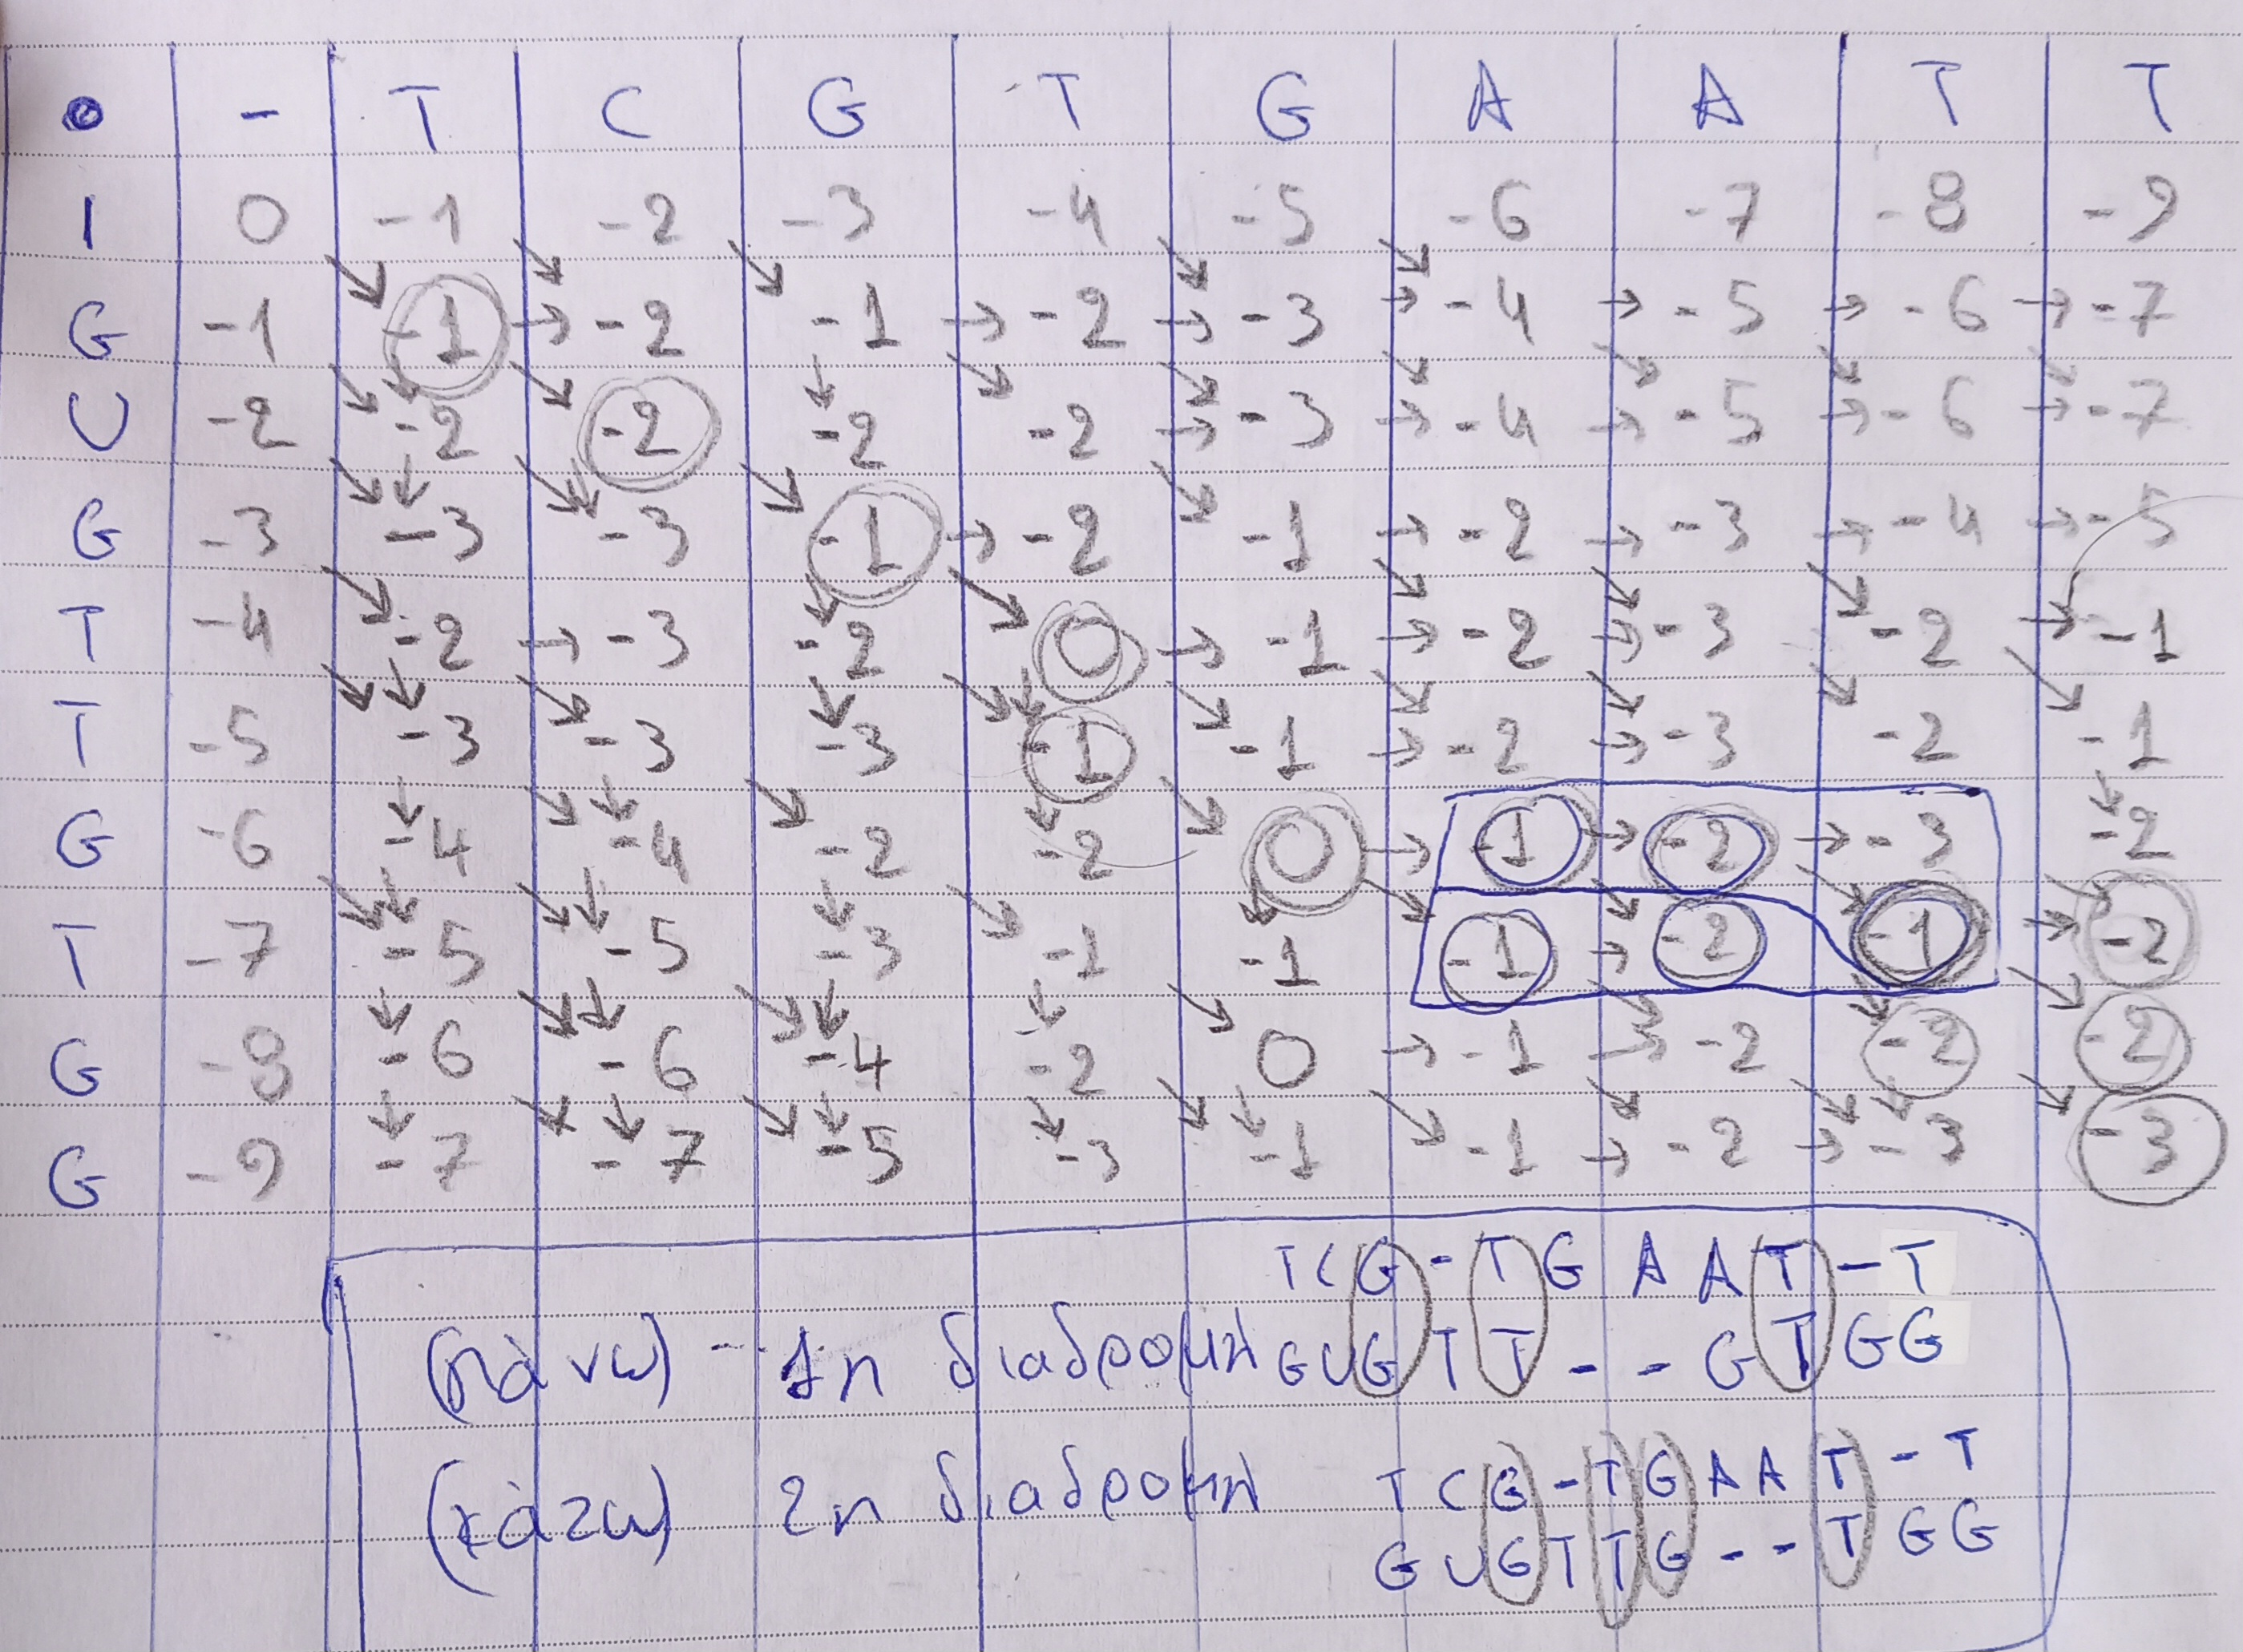 0 - T C G T G A A T T
1 0 -1 -2 -3 -4 -5 -6 -7 -8 -9
G -1 -1 → -2 -1 → -2 → -3 → -4 → -5 → -6 → -7
U -2 -2 -2 -2 -2 → -3 → -4 → -5 → -6 → -7
G -3 -3 -3 -1 → -2 -1 → -2 → -3 → -4 → -5
T -4 -2 → -3 -2 0 → -1 → -2 → -3 -2 → -1
T -5 -3 -3 -3 -1 -1 → -2 → -3 -2 -1
G -6 -4 -4 -2 -2 0 → -1 → -2 → -3 -2
T -7 -5 -5 -3 -1 -1 -1 → -2 -1 → -2
G -8 -6 -6 -4 -2 0 → -1 → -2 -2 -2
G -9 -7 -7 -5 -3 -1 -1 → -2 → -3 -3
T C G - T G A A T - T
(πάνω) -- 1η διαδρομή G U G T T - - G T G G
(κάτω) 2η διαδρομή T C G - T G A A T - T
G U G T T G - - T G G